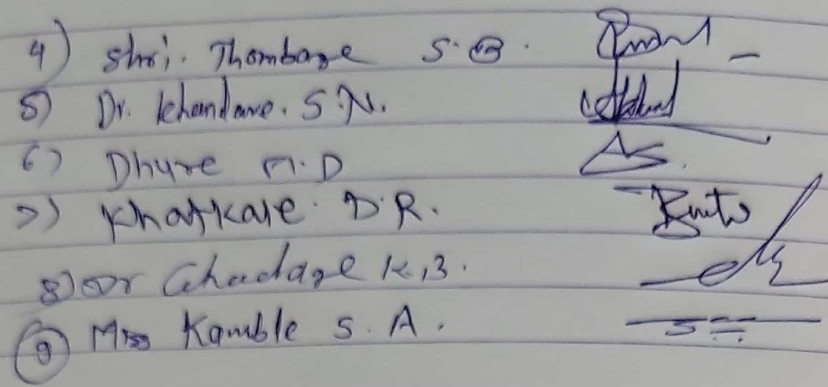 4) Shri. Thombare S.B.
5) Dr. Khandare. S.N.
6) Dhure M.D
7) Khatkale. D.R.
8) Dr Ghadage K.B.
9) Miss Kamble S. A.